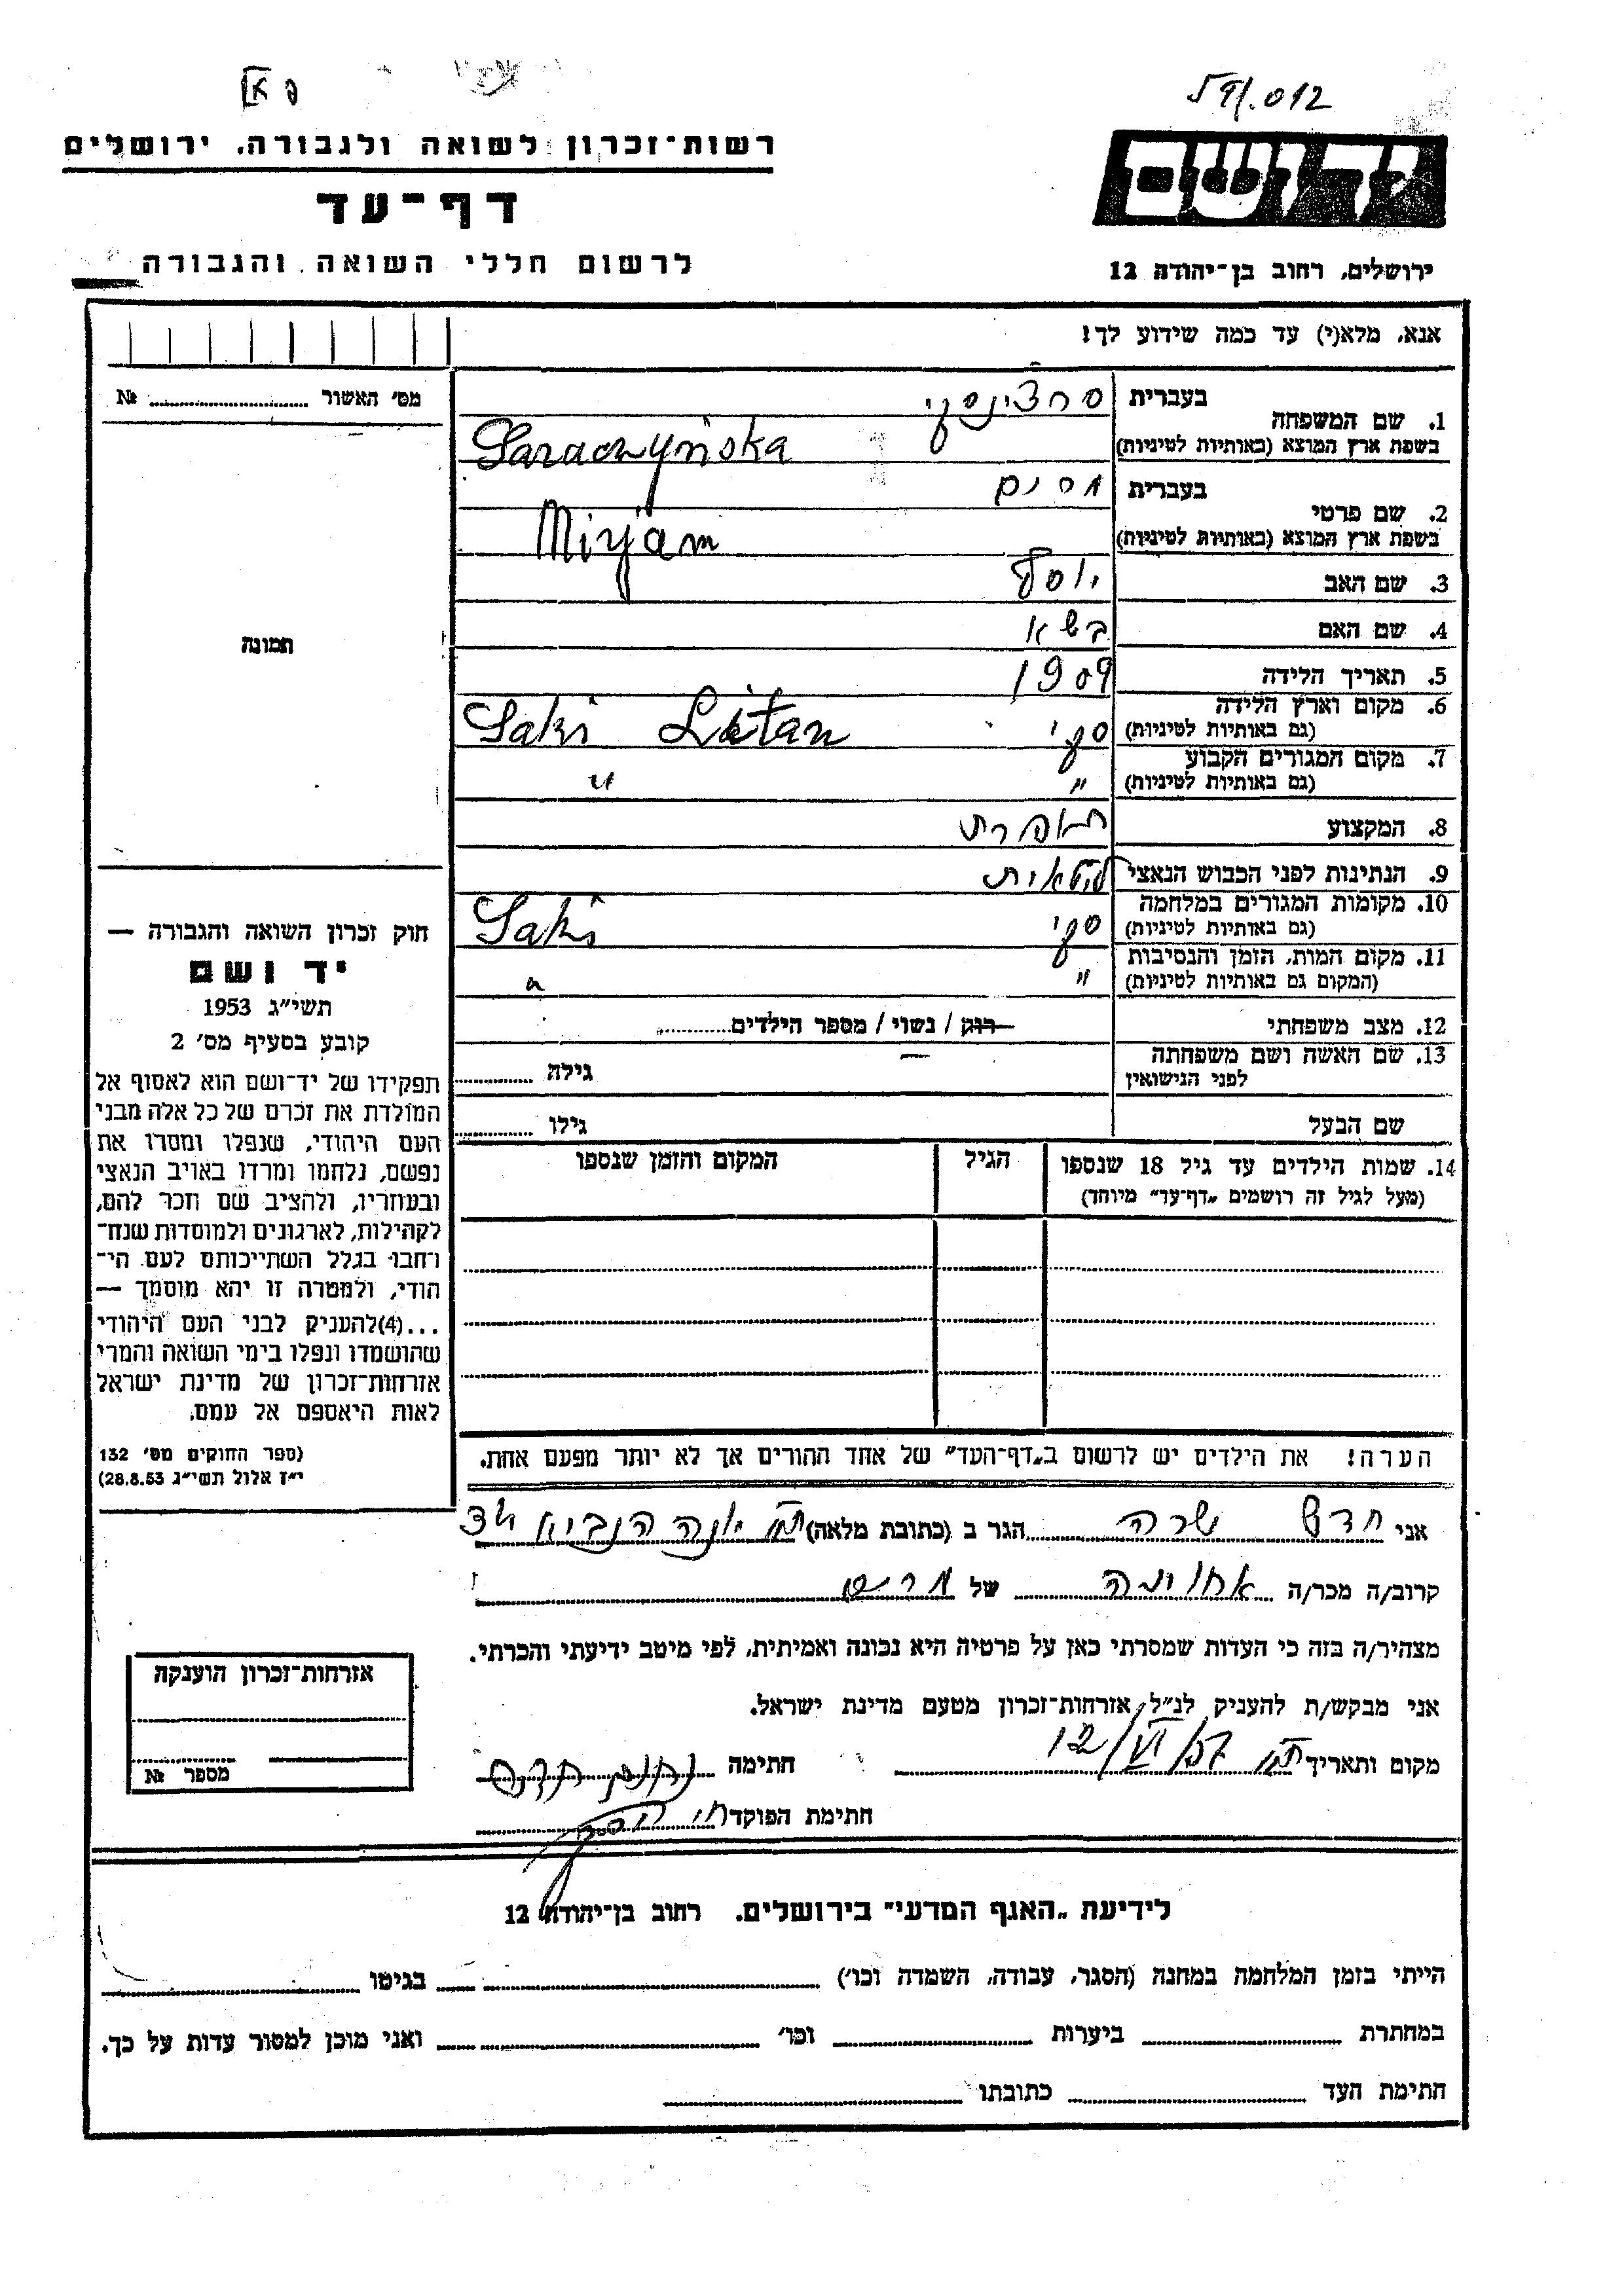 פ א
012
רשות־זכרון לשואה ולגבורה. ירושלים
דף־עד
לרשום חללי השואה והגבורה
ידושם
ירושלים, רחוב בן־יהודה 12
אנא, מלא(י) עד כמה שידוע לך!
מס׳ האשור ............ №
תמונה
1. שם המשפחה בעברית
בשפת ארץ המוצא (באותיות לטיניות)
Saraczyńska
2. שם פרטי בעברית מרים
בשפת ארץ המוצא (באותיות לטיניות) Mirjam
3. שם האב יוסף
4. שם האם בשא
5. תאריך הלידה 1909
6. מקום וארץ הלידה
(גם באותיות לטיניות) סקי Saki
7. מקום המגורים הקבוע
(גם באותיות לטיניות) " "
8. המקצוע תופרת
9. הנתינות לפני הכבוש הנאצי ליטאית
10. מקומות המגורים במלחמה
(גם באותיות לטיניות) סקי Saki
11. מקום המות, הזמן והנסיבות
(המקום גם באותיות לטיניות) " "
12. מצב משפחתי רווק / נשוי / מספר הילדים............
13. שם האשה ושם משפחתה
לפני הנישואין — גילה ............
שם הבעל גילו ............
14. שמות הילדים עד גיל 18 שנספו הגיל המקום והזמן שנספו
(מעל לגיל זה רושמים „דף־עד" מיוחד)
הערה! את הילדים יש לרשום ב„דף־העד" של אחד ההורים אך לא יותר מפעם אחת.
חוק זכרון השואה והגבורה —
יד ושם
תשי״ג 1953
קובע בסעיף מס׳ 2
תפקידו של יד־ושם הוא לאסוף אל
המולדת את זכרם של כל אלה מבני
העם היהודי, שנפלו ומסרו את
נפשם, נלחמו ומרדו באויב הנאצי
ובעוזריו, ולהציב שם וזכר להם,
לקהילות, לארגונים ולמוסדות שנח־
רחבו בגלל השתייכותם לעם הי־
הודי, ולמטרה זו יהא מוסמך —
...(4)להעניק לבני העם היהודי
שהושמדו ונפלו בימי השואה והמרי
אזרחות־זכרון של מדינת ישראל
לאות היאספם אל עמם.
(ספר החוקים מס׳ 132
י״ז אלול תשי״ג 28.8.53)
אני חדש שרה הגר ב (כתובת מלאה) ת״א יונה הנביא
קרוב/ה מכר/ה אחותה של מרים
מצהיר/ה בזה כי העדות שמסרתי כאן על פרטיה היא נכונה ואמיתית, לפי מיטב ידיעתי והכרתי.
אני מבקש/ת להעניק לנ״ל אזרחות־זכרון מטעם מדינת ישראל.
מקום ותאריך ת״א חתימה
חתימת הפוקד
אזרחות־זכרון הוענקה
מספר №
לידיעת „האגף המדעי" בירושלים. רחוב בן־יהודה 12
הייתי בזמן המלחמה במחנה (הסגר, עבודה, השמדה וכו׳) ............ בגיטו ............
במחתרת ............ ביערות ............ וכו׳ ............ ואני מוכן למסור עדות על כך.
חתימת העד ............ כתובתו ............